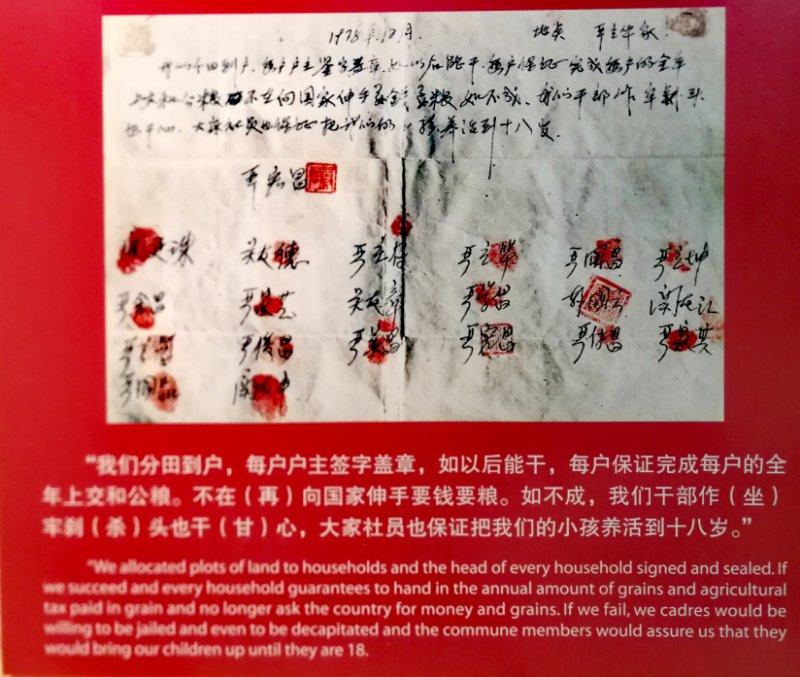 1978年12月 地点 严立华家
我们分田到户，每户户主签字盖章，如以后能干，每户保证完成每户的全年
上交和公粮，不在向国家伸手要钱要粮。如不成，我们干部作牢刹头
也干心，大家社员也保证把我们的小孩养活到十八岁.
严宏昌
友德 严立华 严国昌 严立坤
严金昌 严学昌
严俊昌 严美昌 严宏昌
“我们分田到户，每户户主签字盖章，如以后能干，每户保证完成每户的全
年上交和公粮。不在（再）向国家伸手要钱要粮。如不成，我们干部作（坐）
牢刹（杀）头也干（甘）心，大家社员也保证把我们的小孩养活到十八岁。”
"We allocated plots of land to households and the head of every household signed and sealed. If
we succeed and every household guarantees to hand in the annual amount of grains and agricultural
tax paid in grain and no longer ask the country for money and grains. If we fail, we cadres would be
willing to be jailed and even to be decapitated and the commune members would assure us that they
would bring our children up until they are 18.